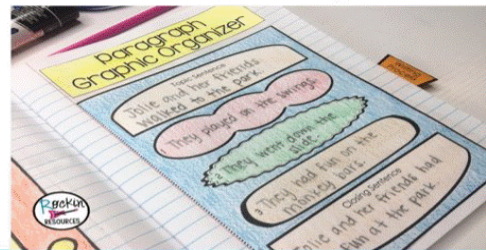 Paragraph
Graphic Organizer
Topic Sentence
Jolie and her friends
walked to the park.
1 They played on the swings.
2 They went down the
slide.
3 They had fun on the
monkey bars.
Closing Sentence
and her friends had
fun at the park.
Writing
Process
Rockin
RESOURCES